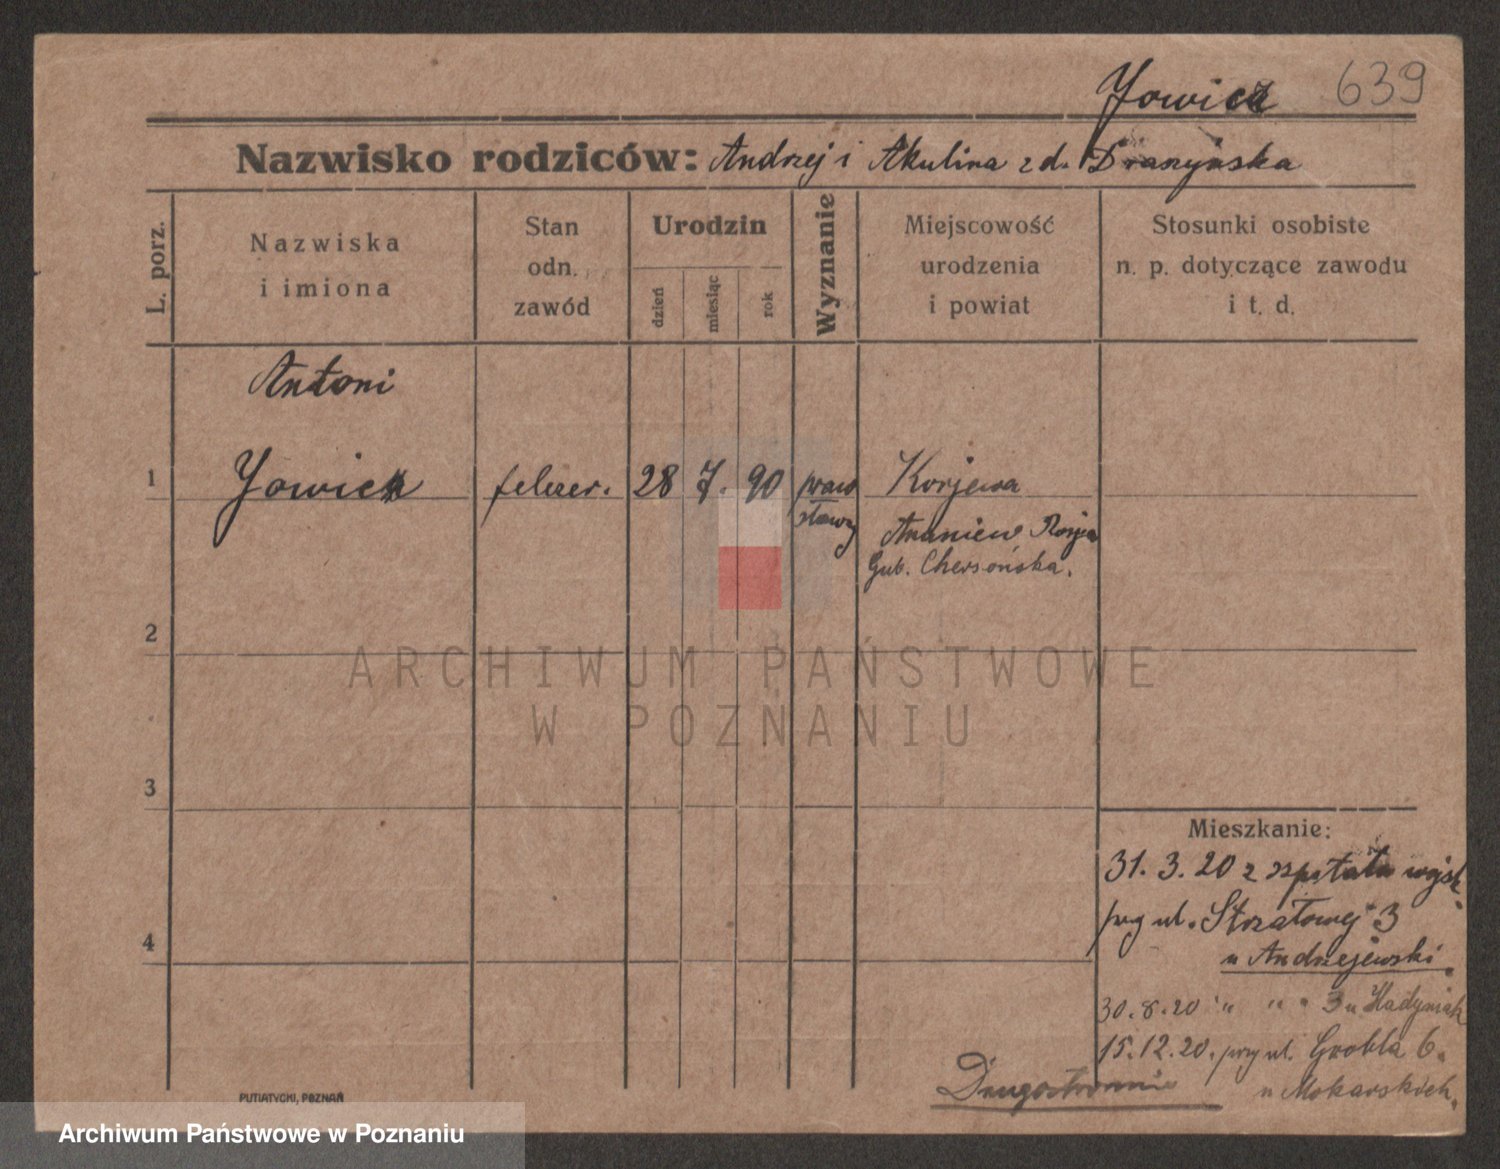 Jowicz 639
Nazwisko rodziców: Andrzej i Akulina z d. Dranyńska
L. porz.
Nazwiska
i imiona
Stan
odn.
zawód
Urodzin
dzień
miesiąc
rok
Wyznanie
Miejscowość
urodzenia
i powiat
Stosunki osobiste
n. p. dotyczące zawodu
i t. d.
Antoni
1 Jowicz felczer. 28 7. 90 praw Korjewa
sławny Ananiew Rosja
Gub. Chersońska.
2
ARCHIWUM PAŃSTWOWE
W POZNANIU
3
Mieszkanie:
31. 3. 20 z szpitala wojsk.
przy ul. Strzałowej 3
4
u Andrzejewski.
30. 8. 20 " " " 3 u Hadyniak
15. 12. 20. przy ul. Grobla 6.
Drugostronnie u Mokarskich.
PUTIATYCKI, POZNAŃ
Archiwum Państwowe w Poznaniu